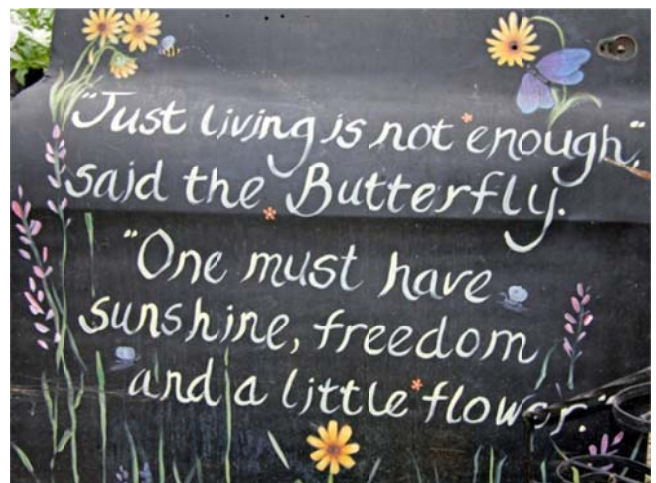 "Just living is not enough",
said the Butterfly.
"One must have
sunshine, freedom
and a little flower."